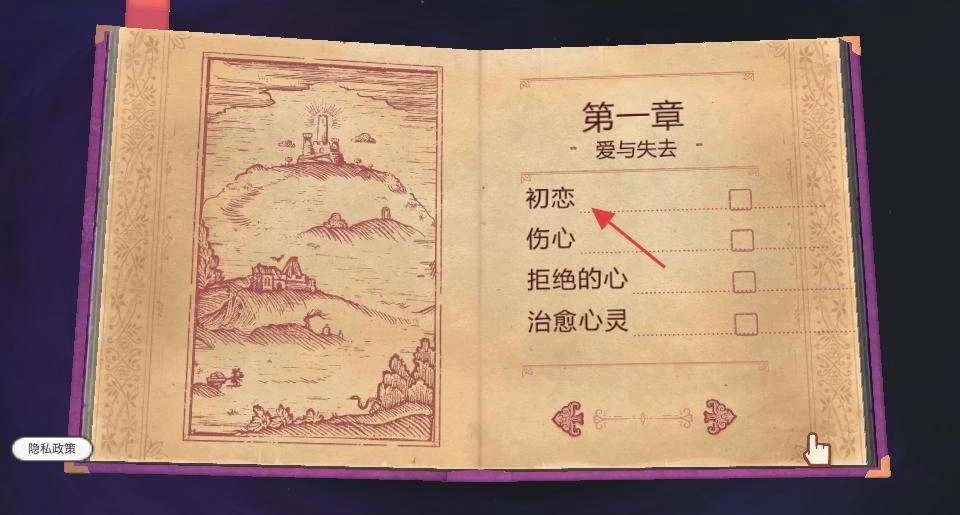 第一章
- 爱与失去 -
初恋
伤心
拒绝的心
治愈心灵
隐私政策